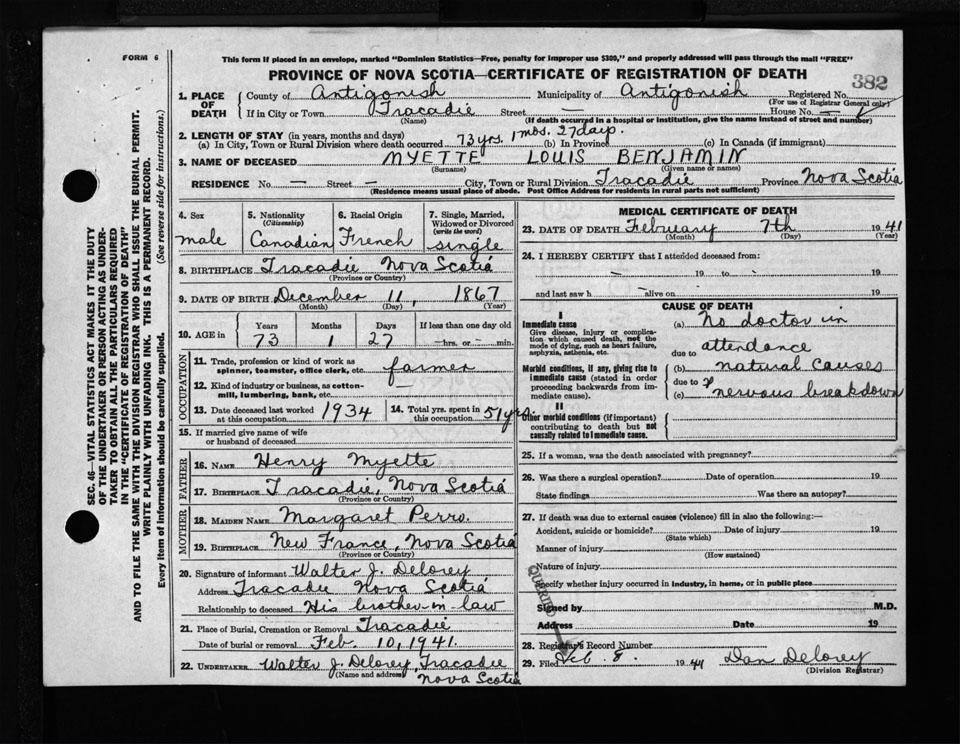 FORM 6
This form if placed in an envelope, marked "Dominion Statistics—Free, penalty for improper use $300," and properly addressed will pass through the mail "FREE"
PROVINCE OF NOVA SCOTIA—CERTIFICATE OF REGISTRATION OF DEATH
382
SEC. 46—VITAL STATISTICS ACT MAKES IT THE DUTY
OF THE UNDERTAKER OR PERSON ACTING AS UNDER-
TAKER TO OBTAIN ALL THE PARTICULARS REQUIRED
IN THE "CERTIFICATE OF REGISTRATION OF DEATH"
AND TO FILE THE SAME WITH THE DIVISION REGISTRAR WHO SHALL ISSUE THE BURIAL PERMIT.
WRITE PLAINLY WITH UNFADING INK. THIS IS A PERMANENT RECORD.
Every item of information should be carefully supplied. (See reverse side for instructions.)
1. PLACE OF DEATH
County of Antigonish Municipality of Antigonish Registered No.
(For use of Registrar General only)
If in City or Town Tracadie Street — House No. —
(Name) (If death occurred in a hospital or institution, give the name instead of street and number)
2. LENGTH OF STAY (in years, months and days)
(a) In City, Town or Rural Division where death occurred 73 yrs. 1 mos. 27 days. (b) In Province (c) In Canada (if immigrant)
3. NAME OF DECEASED MYETTE LOUIS BENJAMIN
(Surname) (Given name or names)
RESIDENCE No. — Street — City, Town or Rural Division Tracadie Province Nova Scotia
(Residence means usual place of abode. Post Office Address for residents in rural parts not sufficient)
4. Sex
male
5. Nationality
(Citizenship)
Canadian
6. Racial Origin
French
7. Single, Married,
Widowed or Divorced
(write the word)
single
8. BIRTHPLACE Tracadie Nova Scotia
(Province or Country)
9. DATE OF BIRTH December 11, 1867
(Month) (Day) (Year)
10. AGE in
Years Months Days If less than one day old
73 1 27 —hrs. or —min.
OCCUPATION
11. Trade, profession or kind of work as
spinner, teamster, office clerk, etc. farmer
12. Kind of industry or business, as cotton-
mill, lumbering, bank, etc. —
13. Date deceased last worked
at this occupation 1934
14. Total yrs. spent in
this occupation 51 yrs.
15. If married give name of wife
or husband of deceased
FATHER
16. NAME Henry Myette
17. BIRTHPLACE Tracadie, Nova Scotia
(Province or Country)
MOTHER
18. MAIDEN NAME Margaret Perro.
19. BIRTHPLACE New France, Nova Scotia
(Province or Country)
20. Signature of informant Walter J. Delorey
Address Tracadie Nova Scotia
Relationship to deceased His brother-in-law
21. Place of Burial, Cremation or Removal Tracadie
Date of burial or removal Feb. 10, 1941.
22. UNDERTAKER Walter J. Delorey, Tracadie
(Name and address) Nova Scotia
MEDICAL CERTIFICATE OF DEATH
23. DATE OF DEATH February 7th 1941
(Month) (Day) (Year)
24. I HEREBY CERTIFY that I attended deceased from:
— 19 to — 19
and last saw h — alive on 19
CAUSE OF DEATH
I
Immediate cause
Give disease, injury or complica-
tion which caused death, not the
mode of dying, such as heart failure,
asphyxia, asthenia, etc.
(a) No doctor in
due to attendance
Morbid conditions, if any, giving rise to
immediate cause (stated in order
proceeding backwards from im-
mediate cause).
(b) natural causes
due to
(c) nervous breakdown
II
Other morbid conditions (if important)
contributing to death but not
causally related to immediate cause.
25. If a woman, was the death associated with pregnancy?
26. Was there a surgical operation? Date of operation 19
State findings Was there an autopsy?
27. If death was due to external causes (violence) fill in also the following:—
Accident, suicide or homicide? Date of injury 19
(State which)
Manner of injury
(How sustained)
Nature of injury
Specify whether injury occurred in industry, in home, or in public place
QUERIED
Signed by M.D.
Address Date 19
28. Registrar's Record Number
29. Filed Feb. 8. 1941 Dan Delorey
(Division Registrar)